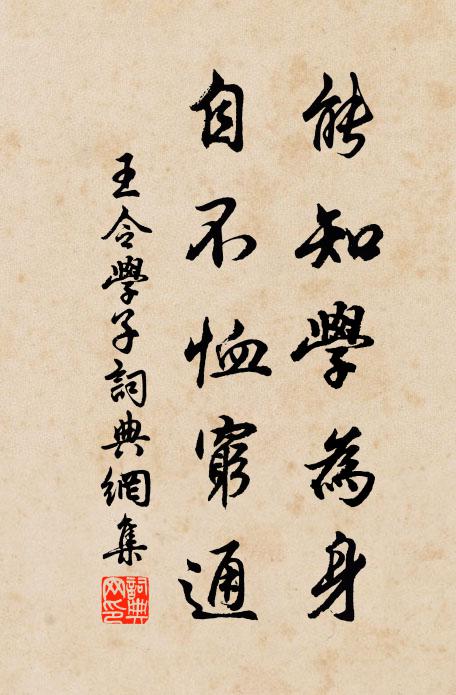 能知學為身
自不恤窮通
王令學子詞典網集
詞典
网印